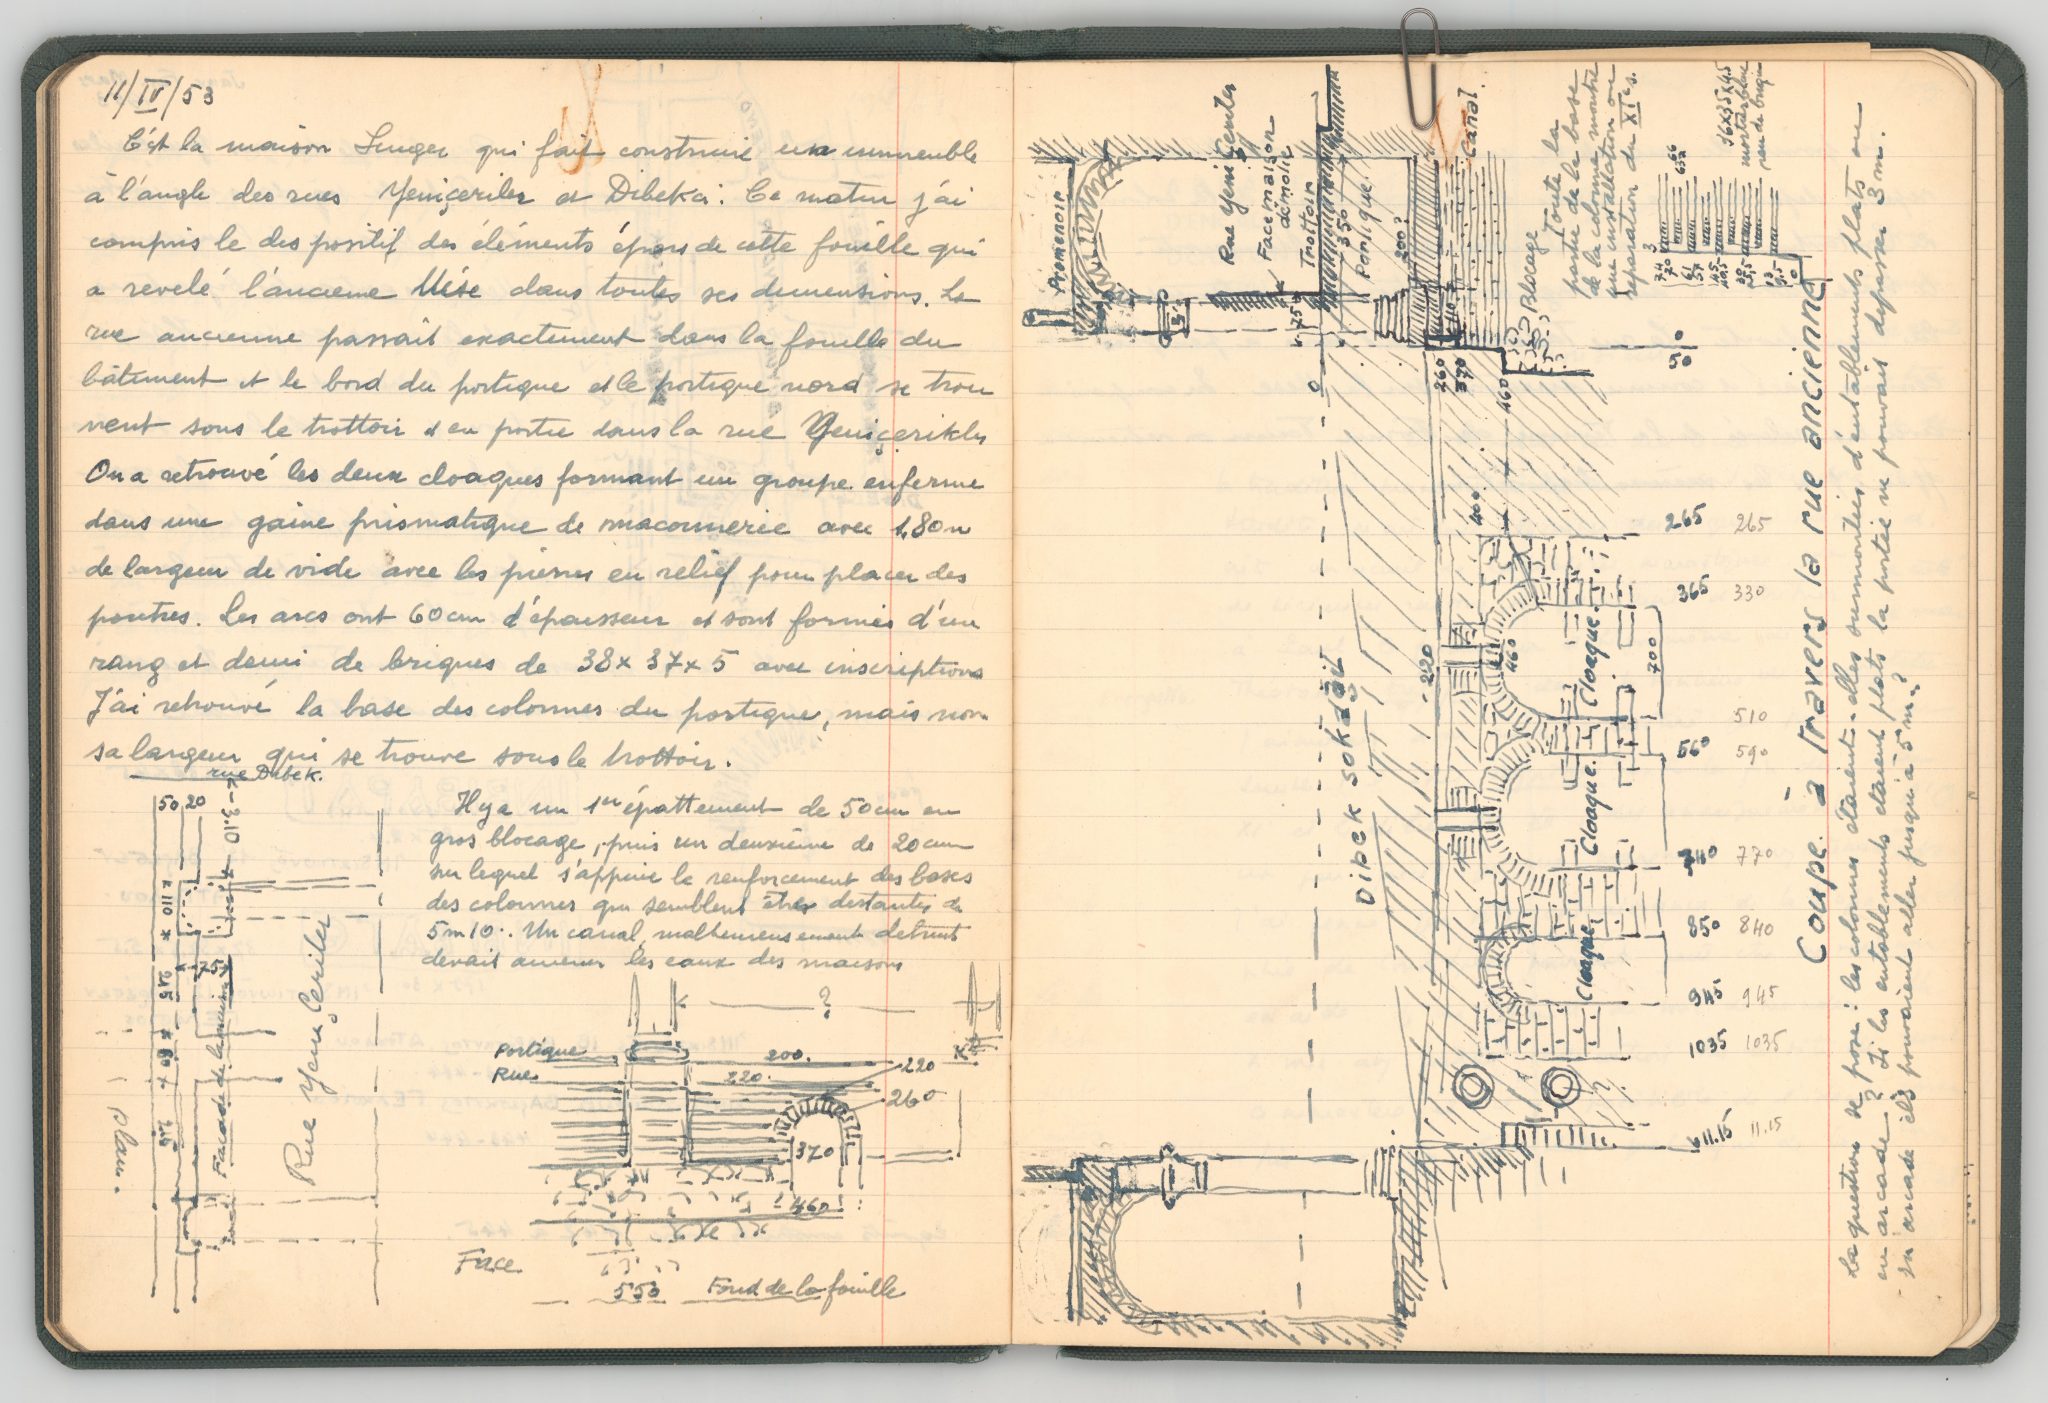 11/IV/53
C'est la maison Singer qui fait construire un immeuble
à l'angle des rues Yeniçeriler et Dibekci. Ce matin j'ai
compris le dispositif des éléments épars de cette fouille qui
a revelé l'ancienne Mése dans toutes ses dimensions. La
rue ancienne passait exactement dans la fouille du
bâtiment et le bord du portique et le portique nord se trou
vent sous le trottoir et en partie dans la rue Yeniçerikler
On a retrouvé les deux cloaques formant un groupe enfermé
dans une gaine prismatique de maçonnerie avec 1,80m
de largeur de vide avec les pierres en relief pour placer des
poutres. Les arcs ont 60cm d'épaisseur et sont formés d'un
rang et demi de briques de 38x37x5 avec inscriptions
J'ai retrouvé la base des colonnes du portique, mais non
sa largeur qui se trouve sous le trottoir.
rue Dibek.
Il y a un 1er épattement de 50cm en
gros blocage, puis un deuxième de 20cm
sur lequel s'appuie le renforcement des bases
des colonnes qui semblent être distantes de
5m10. Un canal, malheureusement detruit
devait amener les eaux des maisons
50 20
3.10
110
75
245
60
Façade de la maison
Rue Yeniçeriler
plan.
?
Portique
Rue
200.
220
220.
260
370
460
Face
550
Fond de la fouille
Promenoir
Rue Yeniceriler
Face maison
démolie
Trottoir
350
Portique.
200?
Canal.
75
0
110
260
370
460
Blocage
Toute la
partie de la base
de la colonne montre
une installation ou
réparation du XIe s.
36x35x4.5
mortier bleu
peu de brique
3
74
70
61
57
0
0
50
Dibek sokağı
220
400
460
Cloaque.
Cloaque.
Cloaque.
700
265 265
365 330
510
560 590
740 770
850 840
945 945
1035 1035
11.15 11.15
Coupe à travers la rue ancienne
La question se pose : les colonnes étaient-elles surmontées d'entablements plats ou
en arcade? Si les entablements étaient plats la portée ne pouvait depasser 3m.
en arcade ils pouvaient aller jusqu'à 5m.?